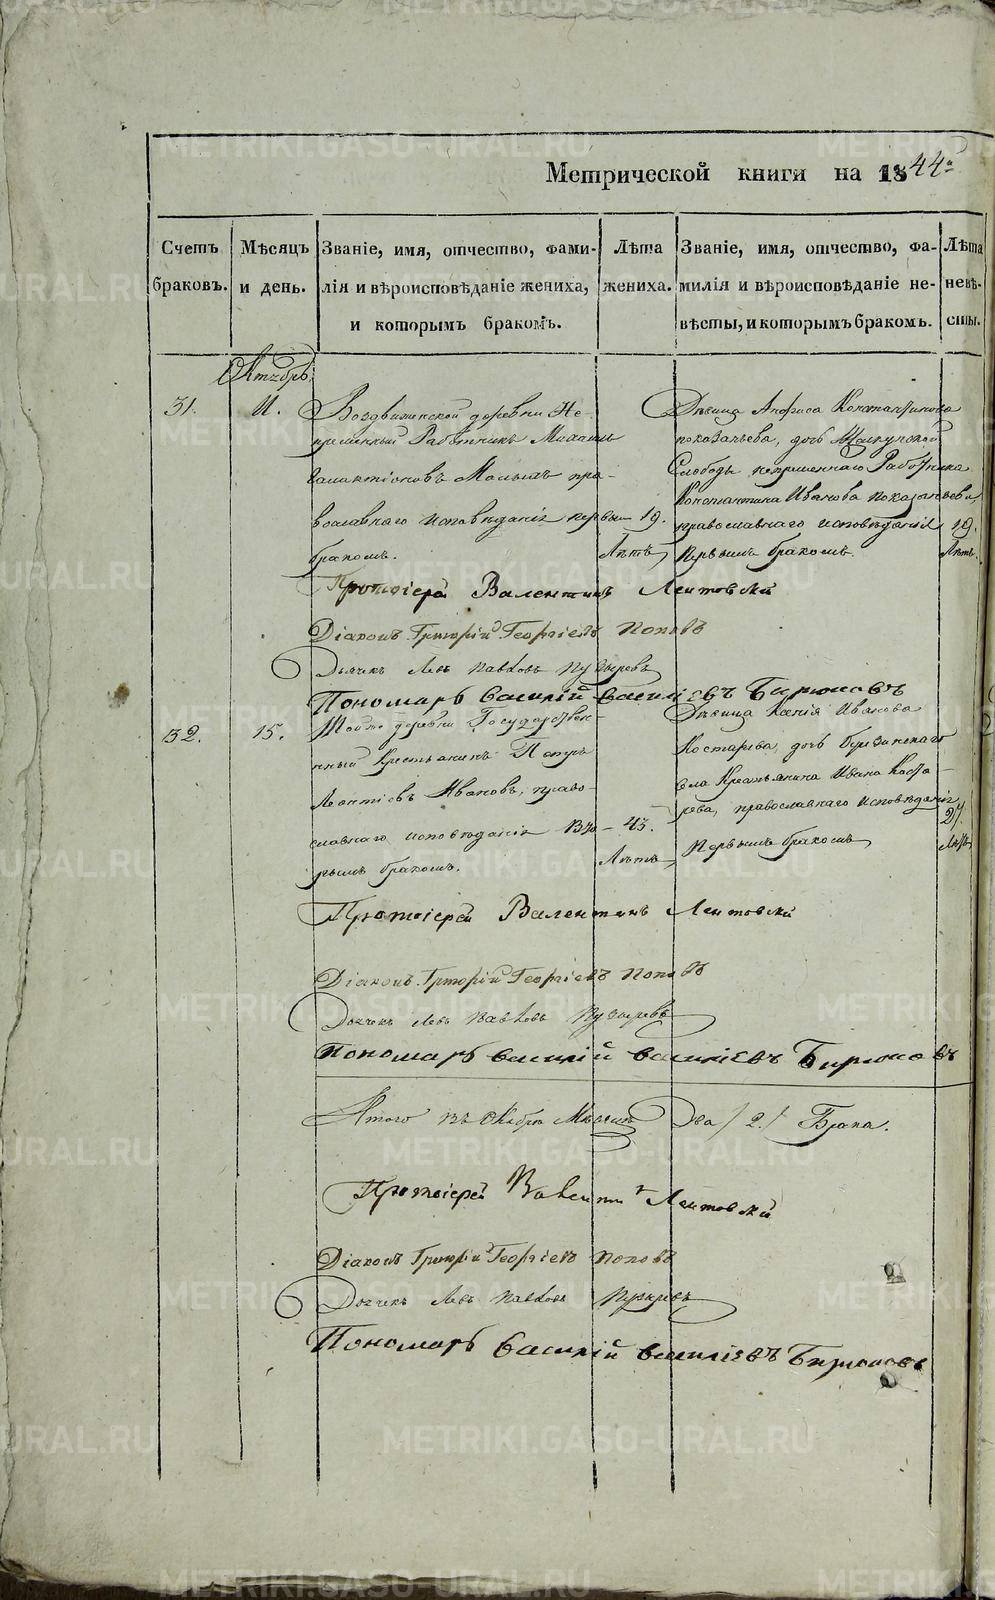 Метрической книги на 1844й
Счетъ браковъ.
Мѣсяцъ и день.
Званіе, имя, отчество, фами-
лія и вѣроисповѣданіе жениха,
и которымъ бракомъ.
Лѣта жениха.
Званіе, имя, отчество, фа-
милія и вѣроисповѣданіе не-
вѣсты, и которымъ бракомъ.
Лѣта невѣ-
сты.
Октябрь
31.
11.
Воздвиженской деревни Не-
премѣнный Работникъ Михаилъ
Галактіоновъ
православнаго исповѣданія первымъ
бракомъ.
19.
Лѣтъ
Дѣвица Анфиса Константинова
Показаньева, дочь
Слободы непремѣннаго Работника
Константина Иванова Показаньева
православнаго исповѣданія
первымъ бракомъ.
19.
Лѣтъ.
Протоіерей Валентинъ Лентовскій
Діаконъ Григорій Георгіевъ Поповъ
Дьячекъ Левъ Павловъ Пузыревъ
Пономарь Василій Василіевъ Бирюковъ
32.
15.
Той же деревни Государствен-
ный Крестьянинъ Петръ
Леонтіевъ Ивановъ, право-
славнаго исповѣданія вто-
рымъ бракомъ.
43.
Лѣтъ
Дѣвица Ксенія Иванова
Костарева, дочь
села Крестьянина Ивана Коста-
рева, православнаго исповѣданія
первымъ бракомъ
27.
Лѣтъ
Протоіерей Валентинъ Лентовскій
Діаконъ Григорій Георгіевъ Поповъ
Дьячекъ Левъ Павловъ Пузыревъ
Пономарь Василій Василіевъ Бирюковъ
Итого въ Октябрѣ Мѣсяцѣ Два /2./ Брака.
Протоіерей Валентинъ Лентовскій
Діаконъ Григорій Георгіевъ Поповъ
Дьячекъ Левъ Павловъ Пузыревъ
Пономарь Василій Василіевъ Бирюковъ
METRIKI.GASO-URAL.RU